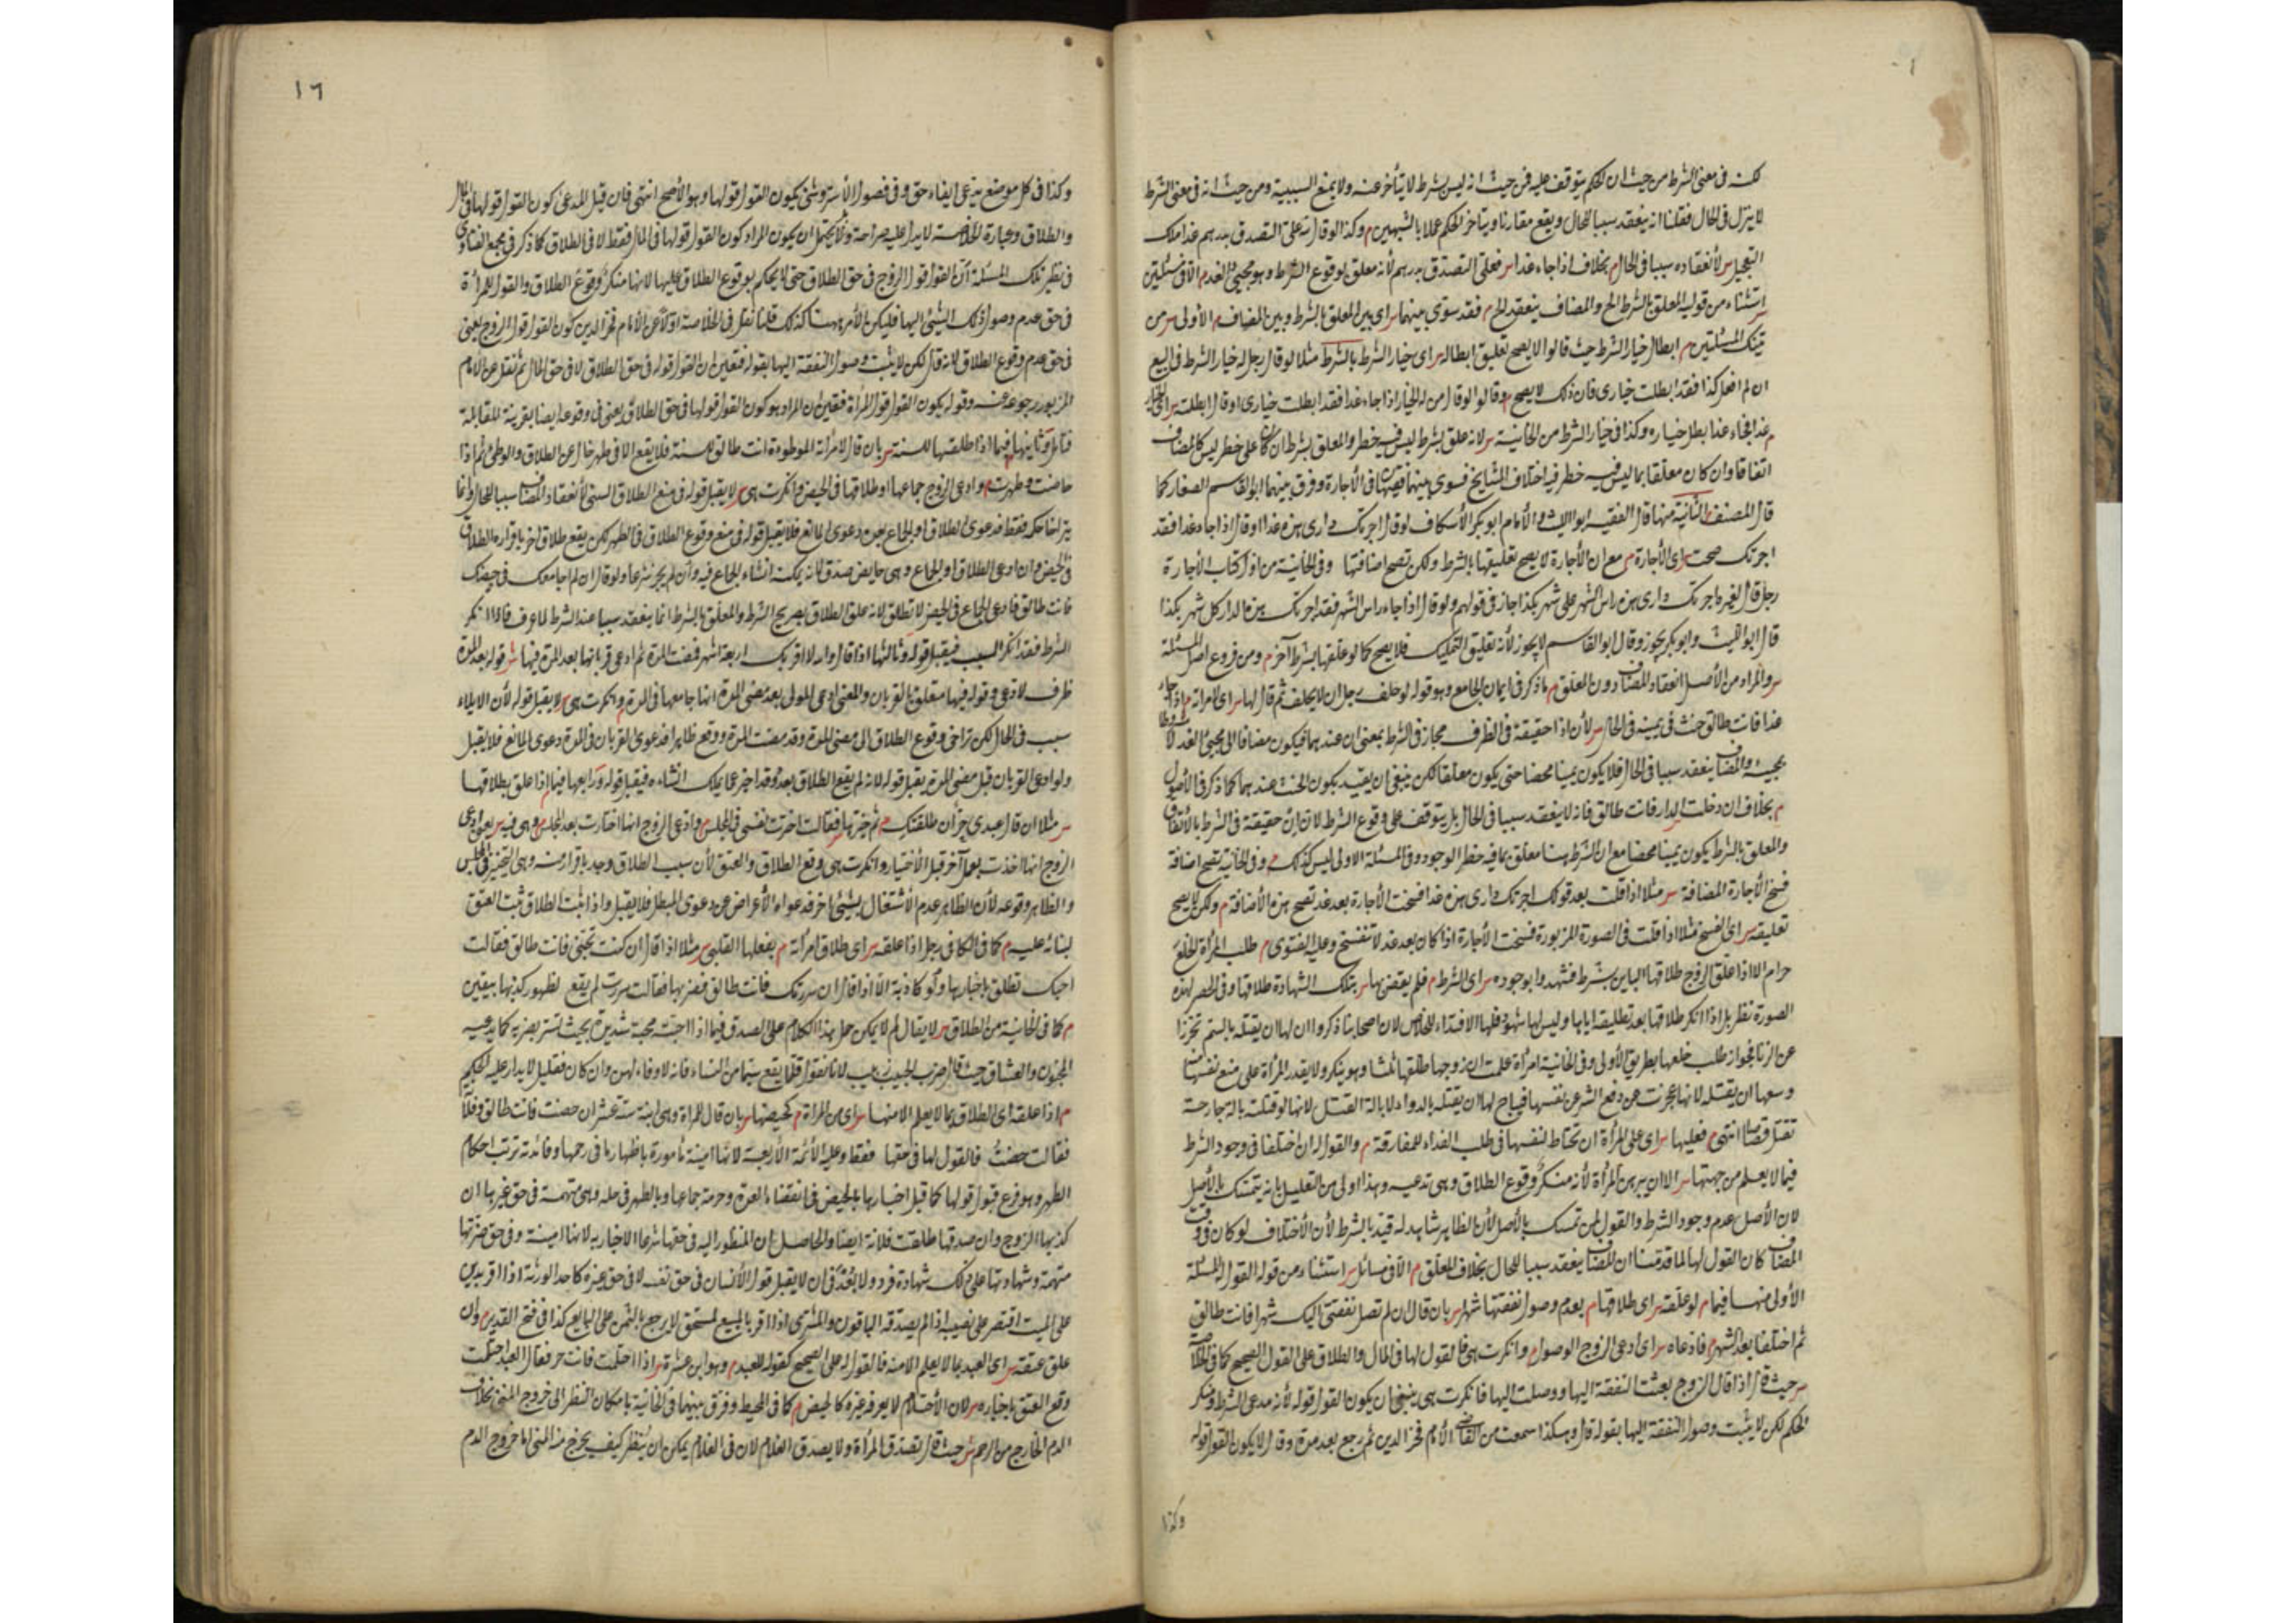 لكنه فى معنى الشرط من حيث ان الحكم يتوقف عليه فمن حيث انه ليس بشرط لا يتأخر عنه ولا يمنع السببية ومن حيث انه فى معنى الشرط
لا ينزل فى الحال فقلنا انه ينعقد سببا للحال ويقع مقارنا ويتأخر الحكم عملا بالشبهين م وكذا لو قال لله على التصدق بدرهم غدا ملك
التعجيل س لأنعقاده سببا فى الحال م بخلاف اذا جاء غدا س فعلى التصدق بدرهم لأنه معلق لوقوع الشرط وهو مجيئ الغد م الا فى مسئلتين
استثناء من قوليه المعلق بالشرط الخ والمضاف ينعقد الخ م فقد سوى بينهما س اى بين المعلق بالشرط وبين المضاف م الأولى س من
تينك المسئلتين م ابطال خيار الشرط حيث قالوا لا يصح تعليق ابطاله س اى خيار الشرط بالشرط مثلا لو قال رجل له خيار الشرط فى البيع
ان لم افعل كذا فقد ابطلت خيارى فان ذلك لا يصح م وقالوا لو قال من له الخيار اذا جاء غدا فقد ابطلت خيارى او قال ابطلته س اى الخيار
م غدا فجاء غدا بطل خياره وكذا فى خيار الشرط من الخانية س لانه علق بشرط ليس فيه خطر والمعلق بشرط ان كان على خطر ليس كالمضاف
اتفاقا وان كان معلقا بما ليس فيه خطر فيه اختلاف المشايخ فسوى بينهما فقيهنا فى الأجارة وفرق بينهما ابو القاسم الصفار كما
قال المصنف الثانية منها قال الفقيه ابو الليث والأمام ابو بكر الأسكاف لو قال اجرتك دارى هذه غدا او قال اذا جاء غدا فقد
اجرتك صحت س اى الأجارة م مع ان الأجارة لا يصح تعليقها بالشرط ولكن تصح اضافتها وفى الخانية من اول كتاب الأجارة
رجل قال لغيره اجرتك دارى هذه راس الشهر على شهر بكذا جاز فى قولهم ولو قال اذا جاء راس الشهر فقد اجرتك هذه الدار كل شهر بكذا
قال ابو الليث وابو بكر يجوز وقال ابو القاسم لا يجوز لأنه تعليق التمليك فلا يصح كما لو علقها بشرط آخر م ومن فروع اصل المسئلة
س والمراد من الأصل انعقاد المضاف دون المعلق م ما ذكر فى ايمان الجامع وهو قوله لو حلف رجل ان لا يحلف ثم قال لها س اى لامرأته م اذا جاء
غدا فانت طالق حنث فى يمينه فى الحال س لأن اذا حقيقة فى الظرف مجاز فى الشرط بمعنى ان عندهما فيكون مضافا الى مجيئ الغد لا
مجيئه والمضاف ينعقد سببا فى الحال فلا يكون يمينا محضا حتى يكون معلقا لكن ينبغى ان يقيد بكون الحنث عندهما كما ذكر فى الأصول
م بخلاف ان دخلت الدار فانت طالق فانه لا ينعقد سببا فى الحال بل يتوقف على وقوع الشرط لان ان حقيقة فى الشرط بالأتفاق
والمعلق بالشرط يكون يمينا محضا مع ان الشرط هنا معلق بما فيه خطر الوجود وفى المسئلة الاولى ليس كذلك م وفى الخانية تصح اضافة
فسخ الأجارة المضافة س مثلا اذا قلت بعد قولك اجرتك دارى هذه غدا فسخت الأجارة بعد غد تصح هذه الأضافة م ولكن لا يصح
تعليقه س اى الفسخ مثلا اذا قلت فى الصورة المزبورة فسخت الأجارة اذا كان بعد غد لا تنفسخ وعليه الفتوى م طلب المرأة الخلع
حرام الا اذا علق الزوج طلاقها الباين بشرط فشهدوا بوجوده س اى الشرط م فلم يقض بها س بتلك الشهادة طلاقها وفى الحصر لهذه
الصورة نظر بل اذا انكر طلاقها بعد تطليقه اياها وليس لها شهود فلها الافتداء للخلاص لان اصحابنا ذكروا ان لها ان يقتله بالسم تحرزا
عن الزنا فجواز طلب خلعها بطريق الأولى وفى الخانية امرأة علمت ان زوجها طلقها ثلثا وهو ينكر ولا يقدر المرأة على منع نفسها منه
وسعها ان يقتله لانها عجزت عن دفع الشر عن نفسها فيباح لها ان يقتله بالدواء لا بالة القتل لانها لو قتلته بالة جارحة
تقتل قصاصا انتهى م فعليها س اى على المرأة ان تحتاط لنفسها فى طلب الفداء للمفارقة م والقول له ان اختلفا فى وجود الشرط
فيما لا يعلم من جهتها س الا ان يبرهن المرأة لأنه منكر وقوع الطلاق وهى تدعيه وهذا اولى من التعليل بانه يتمسك بالأصل
لان الأصل عدم وجود الشرط والقول لمن تمسك بالأصل لأن الظاهر شاهد له قيد بالشرط لأن الأختلاف لو كان فى وقت
المضاف كان القول لها لما قدمنا ان المضاف ينعقد سببا للحال بخلاف المعلق م الا فى مسائل س استثناء من قوله القول له المسئلة
الأولى منها فيما م لو علقه س اى طلاقها م بعدم وصول نفقتها شهرا س بان قال ان لم تصل نفقتى اليك شهرا فانت طالق
ثم اختلفا بعد الشهر م فادعاه س اى ادعى الزوج الوصول م وانكرت هى فالقول لها فى المال والطلاق على القول الصحيح كما فى الخلاصة
س حيث قال اذا قال الزوج بعثت النفقة اليها ووصلت اليها فانكرت هى ينبغى ان يكون القول قوله لأنه مدعى الشرط ومنكر
الحكم لكن لا يثبت وصول النفقة اليها بقوله قال وهكذا سمعت من القاضى الأمام فخر الدين ثم رجع بعد مدة وقال لا يكون القول قوله
وكذا
١٦
وكذا فى كل موضع يدعى ايفاء حق وفى فصول الأستروشنى يكون القول قولها وهو الأصح انتهى فان قيل المدعى كون القول قولها فى المال
والطلاق وعبارة الخلاصة لا يدل عليه صراحة ولا يحتمل ان يكون المراد كون القول قولها فى المال فقط لا فى الطلاق كما ذكر فى مجمع الفتاوى
فى نظير تلك المسئلة ان القول قول الزوج فى حق الطلاق حتى لا يحكم بوقوع الطلاق عليها لانها منكر وقوع الطلاق والقول للمرأة
فى حق عدم وصول ذلك الشيئ اليها فليكن الأمر ههنا كذلك قلنا نقل فى الخلاصة اولا عن الأمام فخر الدين كون القول قول الزوج يعنى
فى حق عدم وقوع الطلاق لانه قال لكن لا يثبت وصول النفقة اليها بقوله فتعين ان القول قوله فى حق الطلاق لا فى حق المال ثم نقل عن الامام
المزبور رجوعه عنه وقوله يكون القول قول المرأة فتعين ان المراد هو كون القول قولها فى حق الطلاق يعنى فى وقوعه ايضا بقرينة المقابلة
فتأمل وثانيها فيما اذا طلقها للسنة س بان قال لامرأته الموطوءة انت طالق للسنة فلا يقع الا فى طهر خال عن الطلاق والوطئ ثم اذا
حاضت وطهرت م وادعى الزوج جماعها او طلاقها فى الحيض وانكرت هى س لا يقبل قوله فى منع الطلاق السنى لأنعقاد المضاف سببا للحال وانما
يتراخى حكمه فقط فدعوى الطلاق او الجماع بعده دعوى المانع فلا يقبل قوله فى منع وقوع الطلاق فى الطهر لكن يقع طلاق اخر باقراره بالطلاق
فى الحيض وان ادعى الطلاق او الجماع وهى حايض صدق لانه يمكنه انشاء الجماع فيه وان لم يجز شرعا ولو قال ان لم اجامعك فى حيضك
فانت طالق فادعى الجماع فى الحيض لا تطلق لانه علق الطلاق بصريح الشرط والمعلق بالشرط انما ينعقد سببا عند الشرط لما عرف فاذا انكر
الشرط فقد انكر السبب فيقبل قوله وثالثها اذا قال والله لا اقربك اربعة اشهر فمضت المدة ثم ادعى قربانها بعد المدة فيها ش قوله بعد المدة
ظرف لادعى وقوله فيها متعلق بالقربان والمعنى ادعى المولى بعد مضى المدة انها جامعها فى المدة م وانكرت هى س لا يقبل قوله لأن الايلاء
سبب فى الحال لكن تراخى وقوع الطلاق الى مضى المدة وقد مضت المدة ووقع ظاهرا فدعوى القربان فى المدة دعوى المانع فلا يقبل
ولو ادعى القربان قبل مضى المدة يقبل قوله لانه لم يقع الطلاق بعد وقد اخبر عما يملك انشاءه فيقبل قوله ورابعها فيما اذا علق بطلاقها
س مثلا ان قال عبدى حر ان طلقتك م ثم خيرها فقالت اخترت نفسى فى المجلس م وادعى الزوج انها اختارت بعد المجلس وهى فيه س يعنى ادعى
الزوج انها اخذت بعمل آخر قبل الأختيار وانكرت هى وقع الطلاق والعتق لأن سبب الطلاق وجد باقرار منه وهى التخيير فى المجلس
والظاهر وقوعه لأن الظاهر عدم الأشتغال بشيئ اخر فدعواه الأعراض عنه دعوى المبطل فلا يقبل واذا ثبت الطلاق ثبت العتق
لبنائه عليه م كما فى الكافى رجل اذا علقه س اى طلاق امرأته م بفعلها القلبى س مثلا اذا قال ان كنت تحبنى فانت طالق فقالت
احبك تطلق باخبارها ولو كاذبة الا اذا قال ان سررتك فانت طالق فضربها فقالت سررت لم يقع لظهور كذبها بيقين
م كما فى الخانية من الطلاق س لا يقال لم لا يمكن حمل هذا الكلام على الصدق فيما اذا احبته محبة شديدة بحيث تسر بضربه كما يدعيه
المجنون والعشاق حيث قال ضرب الحبيب زبيب لانا نقول قلما يقع سيما من النساء فانه لا وفاء لهن وان كان فقليل لا يدار عليه الحكم
م اذا علقه اى الطلاق بما لا يعلم الا منها س اى من المرأة م كحيضها س بان قال للمرأة وهى ابنة ستة عشر ان حضت فانت طالق وفلانة
فقالت حضت فالقول لها فى حقها فقط وعليه الأئمة الأربعة لانها امينة مأمورة باظهار ما فى رحمها وفائدته ترتب احكام
الطهر وهو فرع قبول قولها كما قبل اخبارها بالحيض فى انقضاء العدة وحرمة جماعها وبالطهر فى حله وهى متهمة فى حق غيرها ان
كذبها الزوج وان صدقها طلقت فلانة ايضا والحاصل ان المنظور اليه فى حقها شرعا الاخبار به لانها امينة وفى حق ضرتها
متهمة وشهادتها على ذلك شهادة فرد ولا بعد فى ان لا يقبل قول الأنسان فى حق نفسه لا فى حق غيره كاحد الورثة اذا اقر بدين
على الميت اقتصر على نصيبه اذا لم يصدقه الباقون والمشترى اذا اقر بالمبيع لمستحق لا يرجع بالثمن على البايع كذا فى فتح القدير م وان
علق عتقه س اى العبد بما لا يعلم الا منه فالقول له على الصحيح كقوله للعبد م وهو ابن عشرة س اذا احتلمت فانت حر فقال العبد احتلمت
وقع العتق باخباره س لان الأحتلام لا يعرفه غيره كالحيض م كما فى المحيط وفرق بينهما فى الخانية بامكان النظر الى خروج المنى بخلاف
الدم الخارج من الرحم ش حيث قال تصدق المرأة ولا يصدق الغلام لان فى الغلام يمكن ان ينظر كيف يخرج منه المنى اما خروج الدم